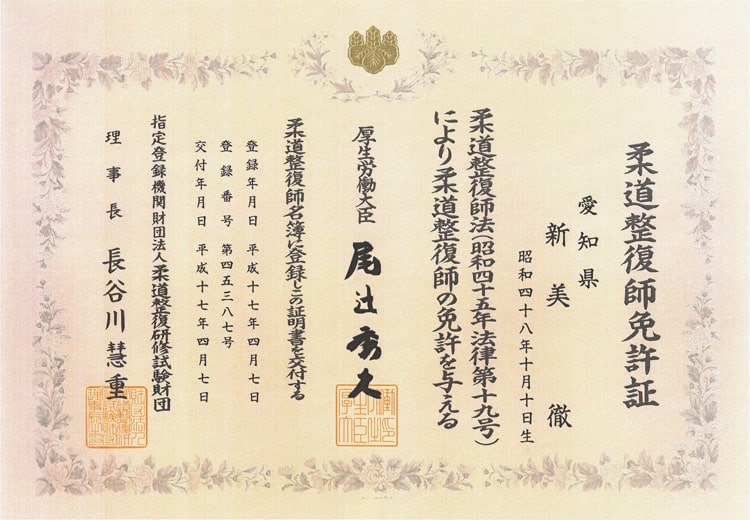 柔道整復師免許証
愛知県
新美 徹
昭和四十八年十月十日生
柔道整復師法(昭和四十五年法律第十九号)
により柔道整復師の免許を与える
厚生労働大臣 尾辻秀久
柔道整復師名簿に登録しこの証明書を交付する
登録年月日 平成十七年四月七日
登録番号 第四五三八七号
交付年月日 平成十七年四月七日
指定登録機関財団法人柔道整復研修試験財団
理事長 長谷川慧重